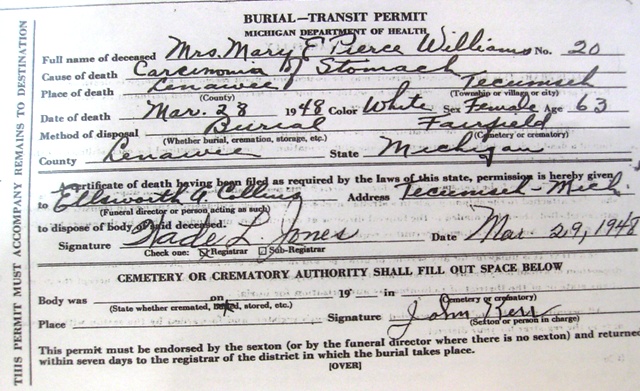 BURIAL—TRANSIT PERMIT
MICHIGAN DEPARTMENT OF HEALTH
Full name of deceased Mrs. Mary E Pierce Williams No. 20
Cause of death Carcinoma of Stomach
Place of death Lenawee Tecumseh
(County) (Township or village or city)
Date of death Mar. 28 1948 Color White Sex Female Age 63
Method of disposal Burial Fairfield
(Whether burial, cremation, storage, etc.) (Cemetery or crematory)
County Lenawee State Michigan
certificate of death having been filed as required by the laws of this state, permission is hereby given
to Ellsworth A. Collins Address Tecumseh - Mich.
(Funeral director or person acting as such)
to dispose of body of said deceased.
Signature Wade L. Jones Date Mar. 29, 1948
Check one: Registrar Sub-Registrar
CEMETERY OR CREMATORY AUTHORITY SHALL FILL OUT SPACE BELOW
Body was on 19 in
(State whether cremated, buried, stored, etc.) (Cemetery or crematory)
Place Signature John Kerr
(Sexton or person in charge)
This permit must be endorsed by the sexton (or by the funeral director where there is no sexton) and returned
within seven days to the registrar of the district in which the burial takes place.
[OVER]
THIS PERMIT MUST ACCOMPANY REMAINS TO DESTINATION